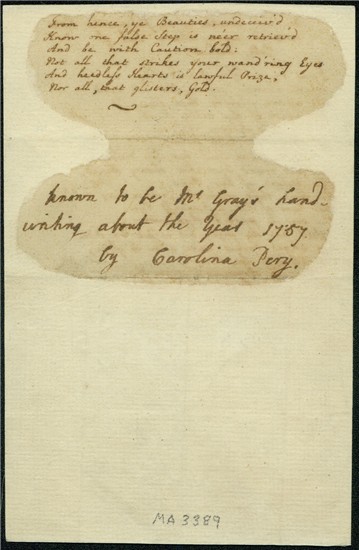 From hence, ye Beauties, undeceiv'd,
Know one false Step is ne'er retriev'd
And be with Caution bold:
Not all that strikes your wand'ring Eyes
And heedless Hearts is lawful Prize,
Nor all, that glisters, Gold.
Known to be Mr Gray's hand-
writing about the Year 1757
by Carolina Pery.
MA 3389